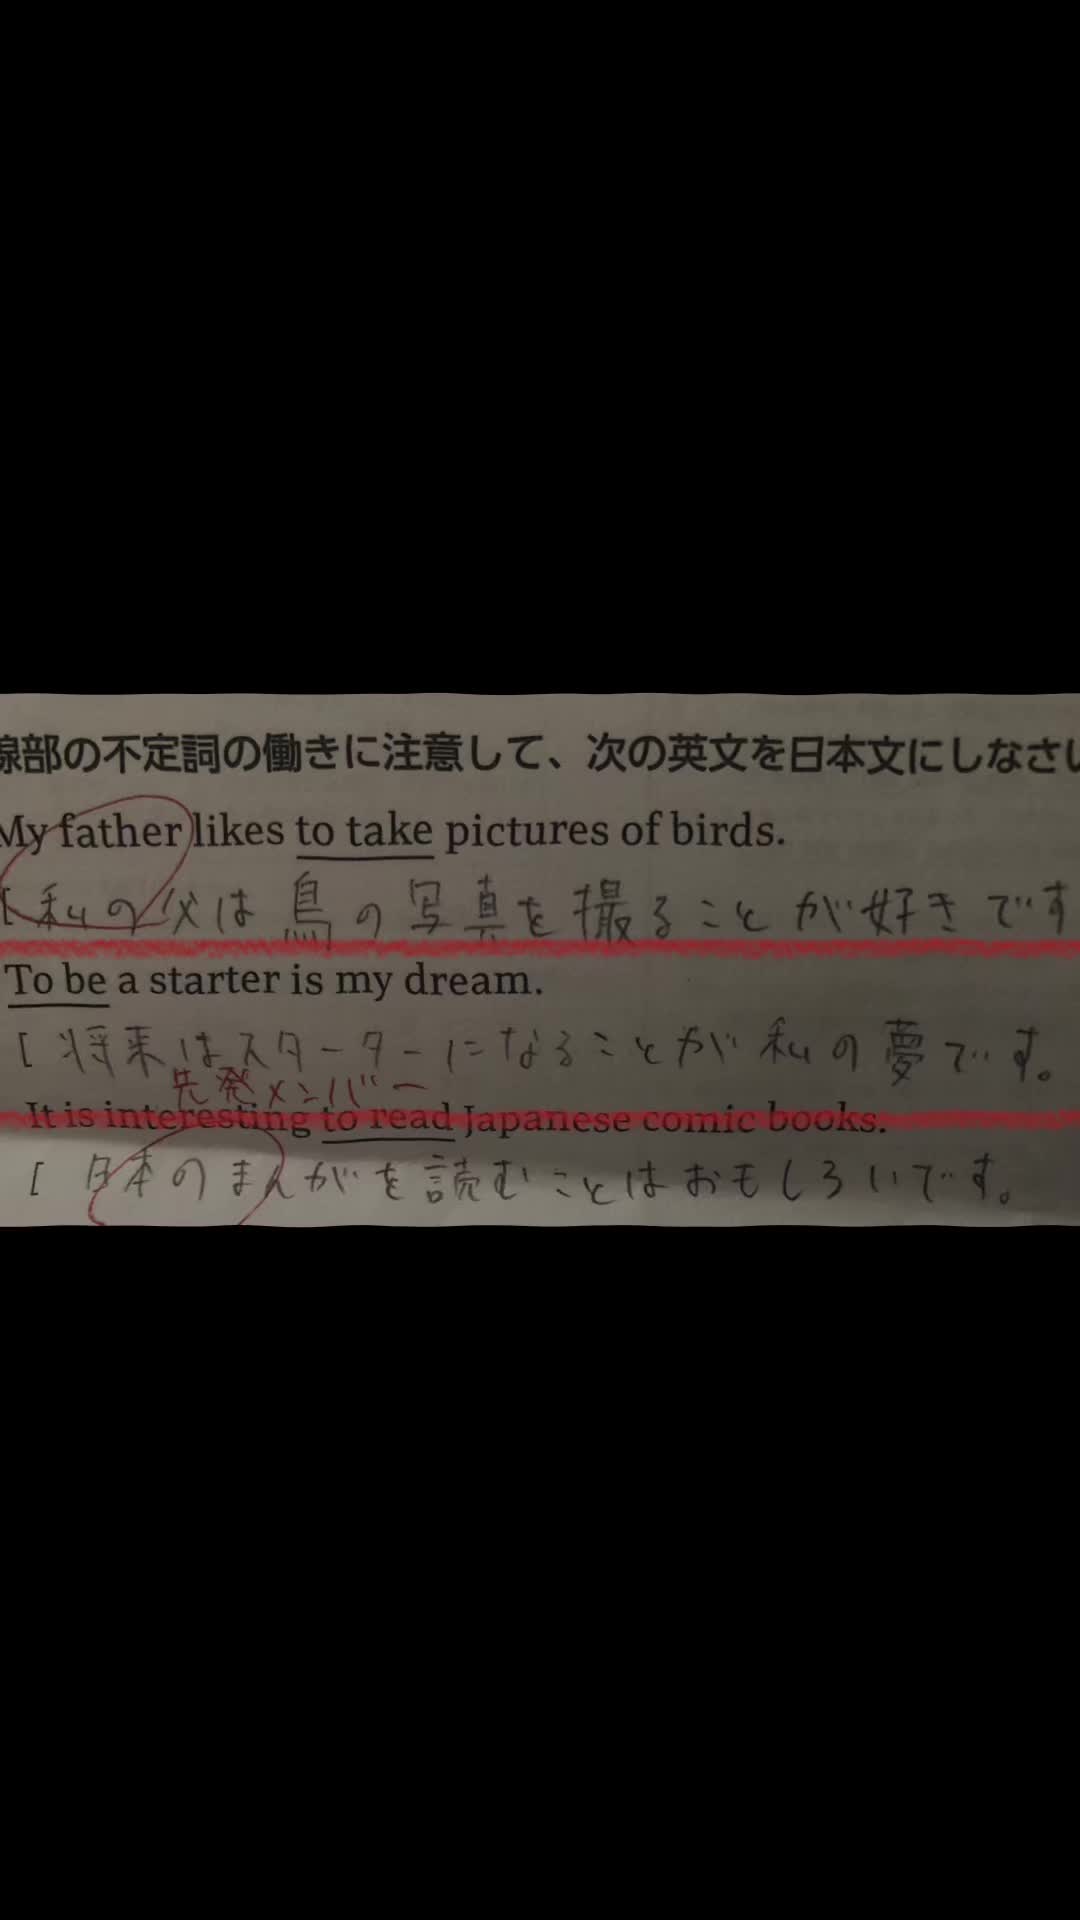 線部の不定詞の働きに注意して、次の英文を日本文にしなさい
My father likes to take pictures of birds.
[ 私の父は鳥の写真を撮ることが好きです
To be a starter is my dream.
[ 将来はスターターになることが私の夢です。
先発メンバー
It is interesting to read Japanese comic books.
[ 日本のまんがを読むことはおもしろいです。